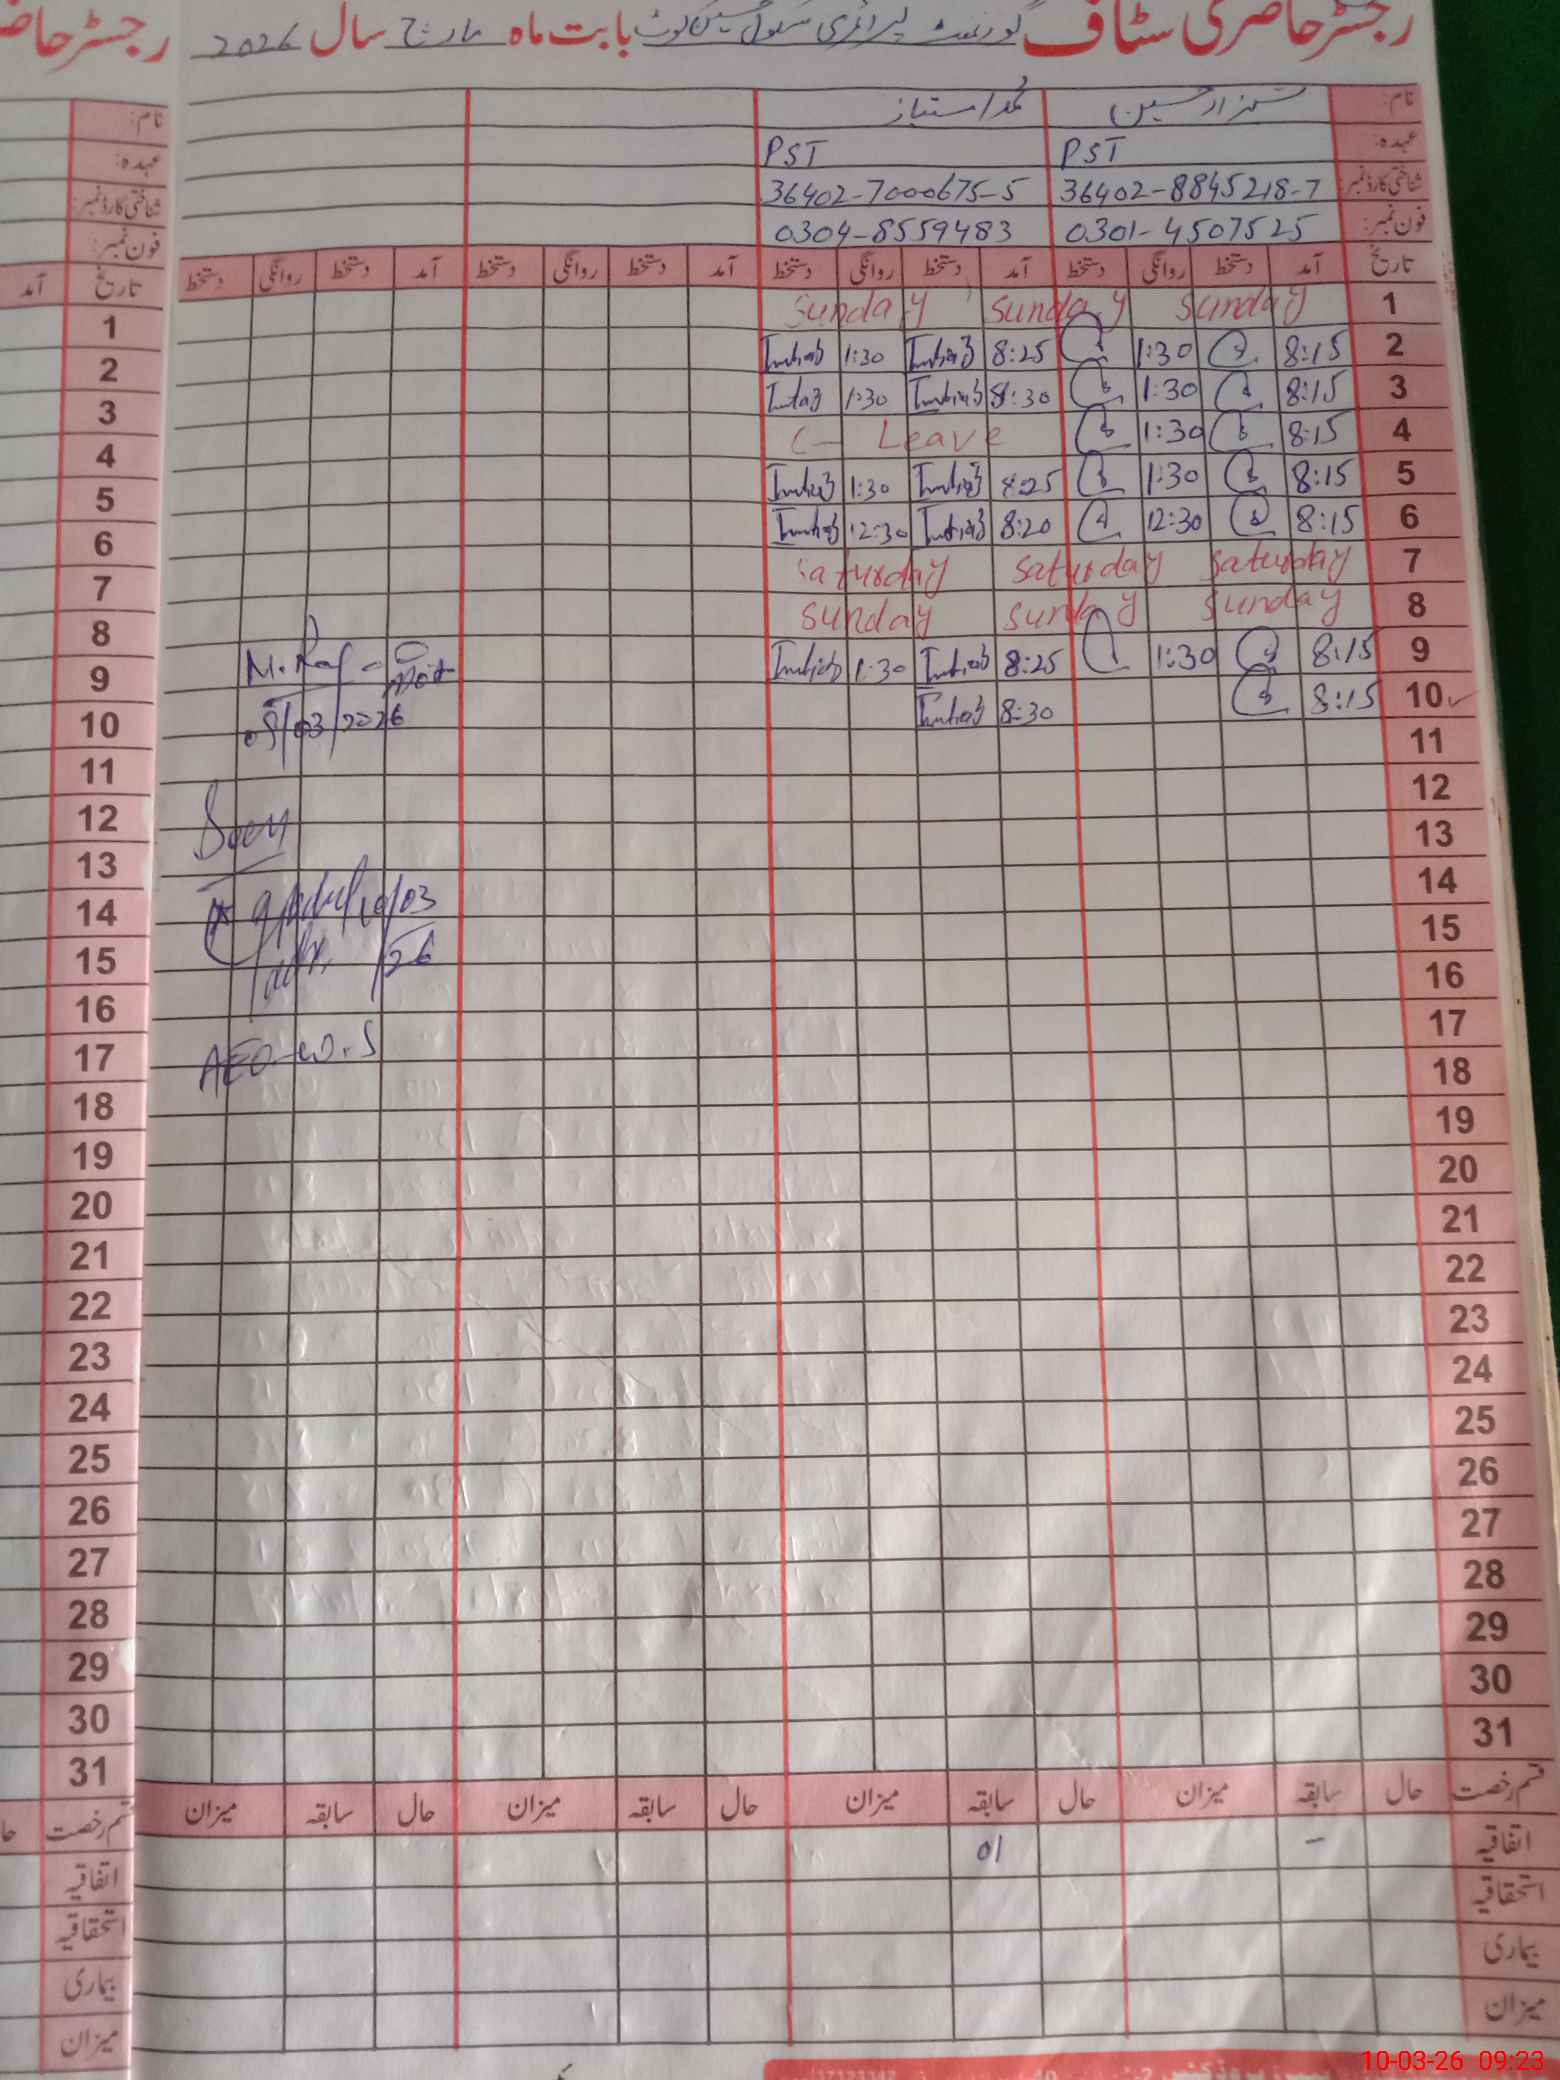 رجسٹر حاضری سٹاف گورنمنٹ پرائمری سکول بابت ماہ مارچ سال 2026
نام: شہزاد حسین محمد امتیاز
عہدہ: PST PST
شناختی کارڈ نمبر: 36402-8845218-7 36402-7000675-5
فون نمبر: 0301-4507525 0304-8559483
تاریخ آمد دستخط روانگی دستخط آمد دستخط روانگی دستخط آمد دستخط روانگی دستخط آمد دستخط روانگی دستخط
1 Sunday Sunday Sunday
2 8:15 1:30 8:25 Imtiaz 1:30 Imtiaz
3 8:15 1:30 8:30 Imtiaz 1:30 Imtiaz
4 8:15 1:30 C- Leave
5 8:15 1:30 8:25 Imtiaz 1:30 Imtiaz
6 8:15 12:30 8:20 Imtiaz 12:30 Imtiaz
7 Saturday Saturday Saturday
8 Sunday Sunday Sunday
9 8:15 1:30 8:25 Imtiaz 1:30 Imtiaz
10 8:15 8:30 Imtiaz
11
12
13
14
15
16
17
18
19
20
21
22
23
24
25
26
27
28
29
30
31
قسم رخصت حال سابقہ میزان حال سابقہ میزان حال سابقہ میزان حال سابقہ میزان
اتفاقیہ - 01
استحقاقیہ
بیماری
میزان
/03/2026
10/03
/26
AEO
رجسٹر
نام:
عہدہ:
شناختی کارڈ نمبر:
فون نمبر:
تاریخ آمد
1
2
3
4
5
6
7
8
9
10
11
12
13
14
15
16
17
18
19
20
21
22
23
24
25
26
27
28
29
30
31
قسم رخصت
اتفاقیہ
استحقاقیہ
بیماری
میزان
10-03-26 09:23